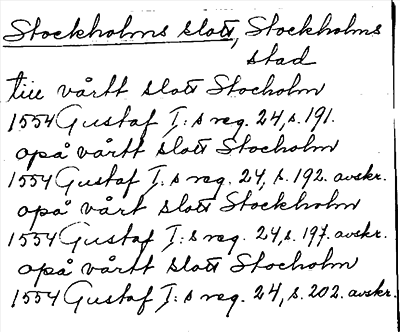 Stockholms slott, Stockholms
stad
till vårtt slott Stocholm
1554 Gustaf I:s reg. 24, s. 191.
opå vårtt slott Stocholm
1554 Gustaf I:s reg. 24, s. 192. avskr.
opå vårt slott Stockholm
1554 Gustaf I:s reg. 24, s. 197. avskr.
opå vårtt slott Stocholm
1554 Gustaf I:s reg. 24, s. 202. avskr.